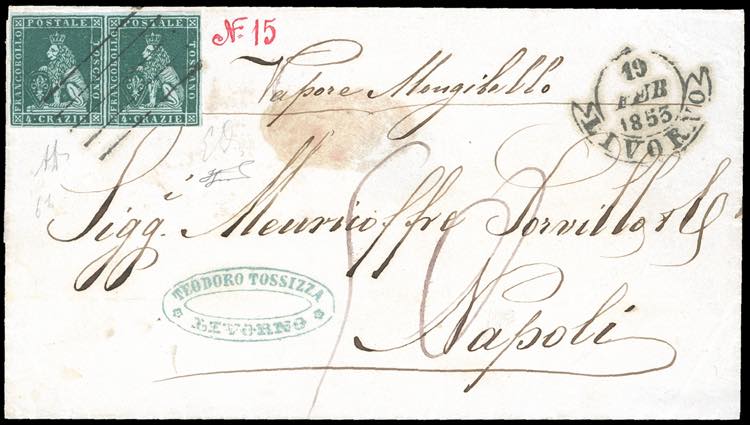 FRANCOBOLLO POSTALE TOSCANO
4·CRAZIE
FRANCOBOLLO POSTALE TOSCANO
4·CRAZIE
No. 15
Vapore Mongibello
19
FEB
1853
LIVORNO
Sigg.i Meuricoffre Sorvillo & C.
TEODORO TOSSIZZA
LIVORNO
Napoli